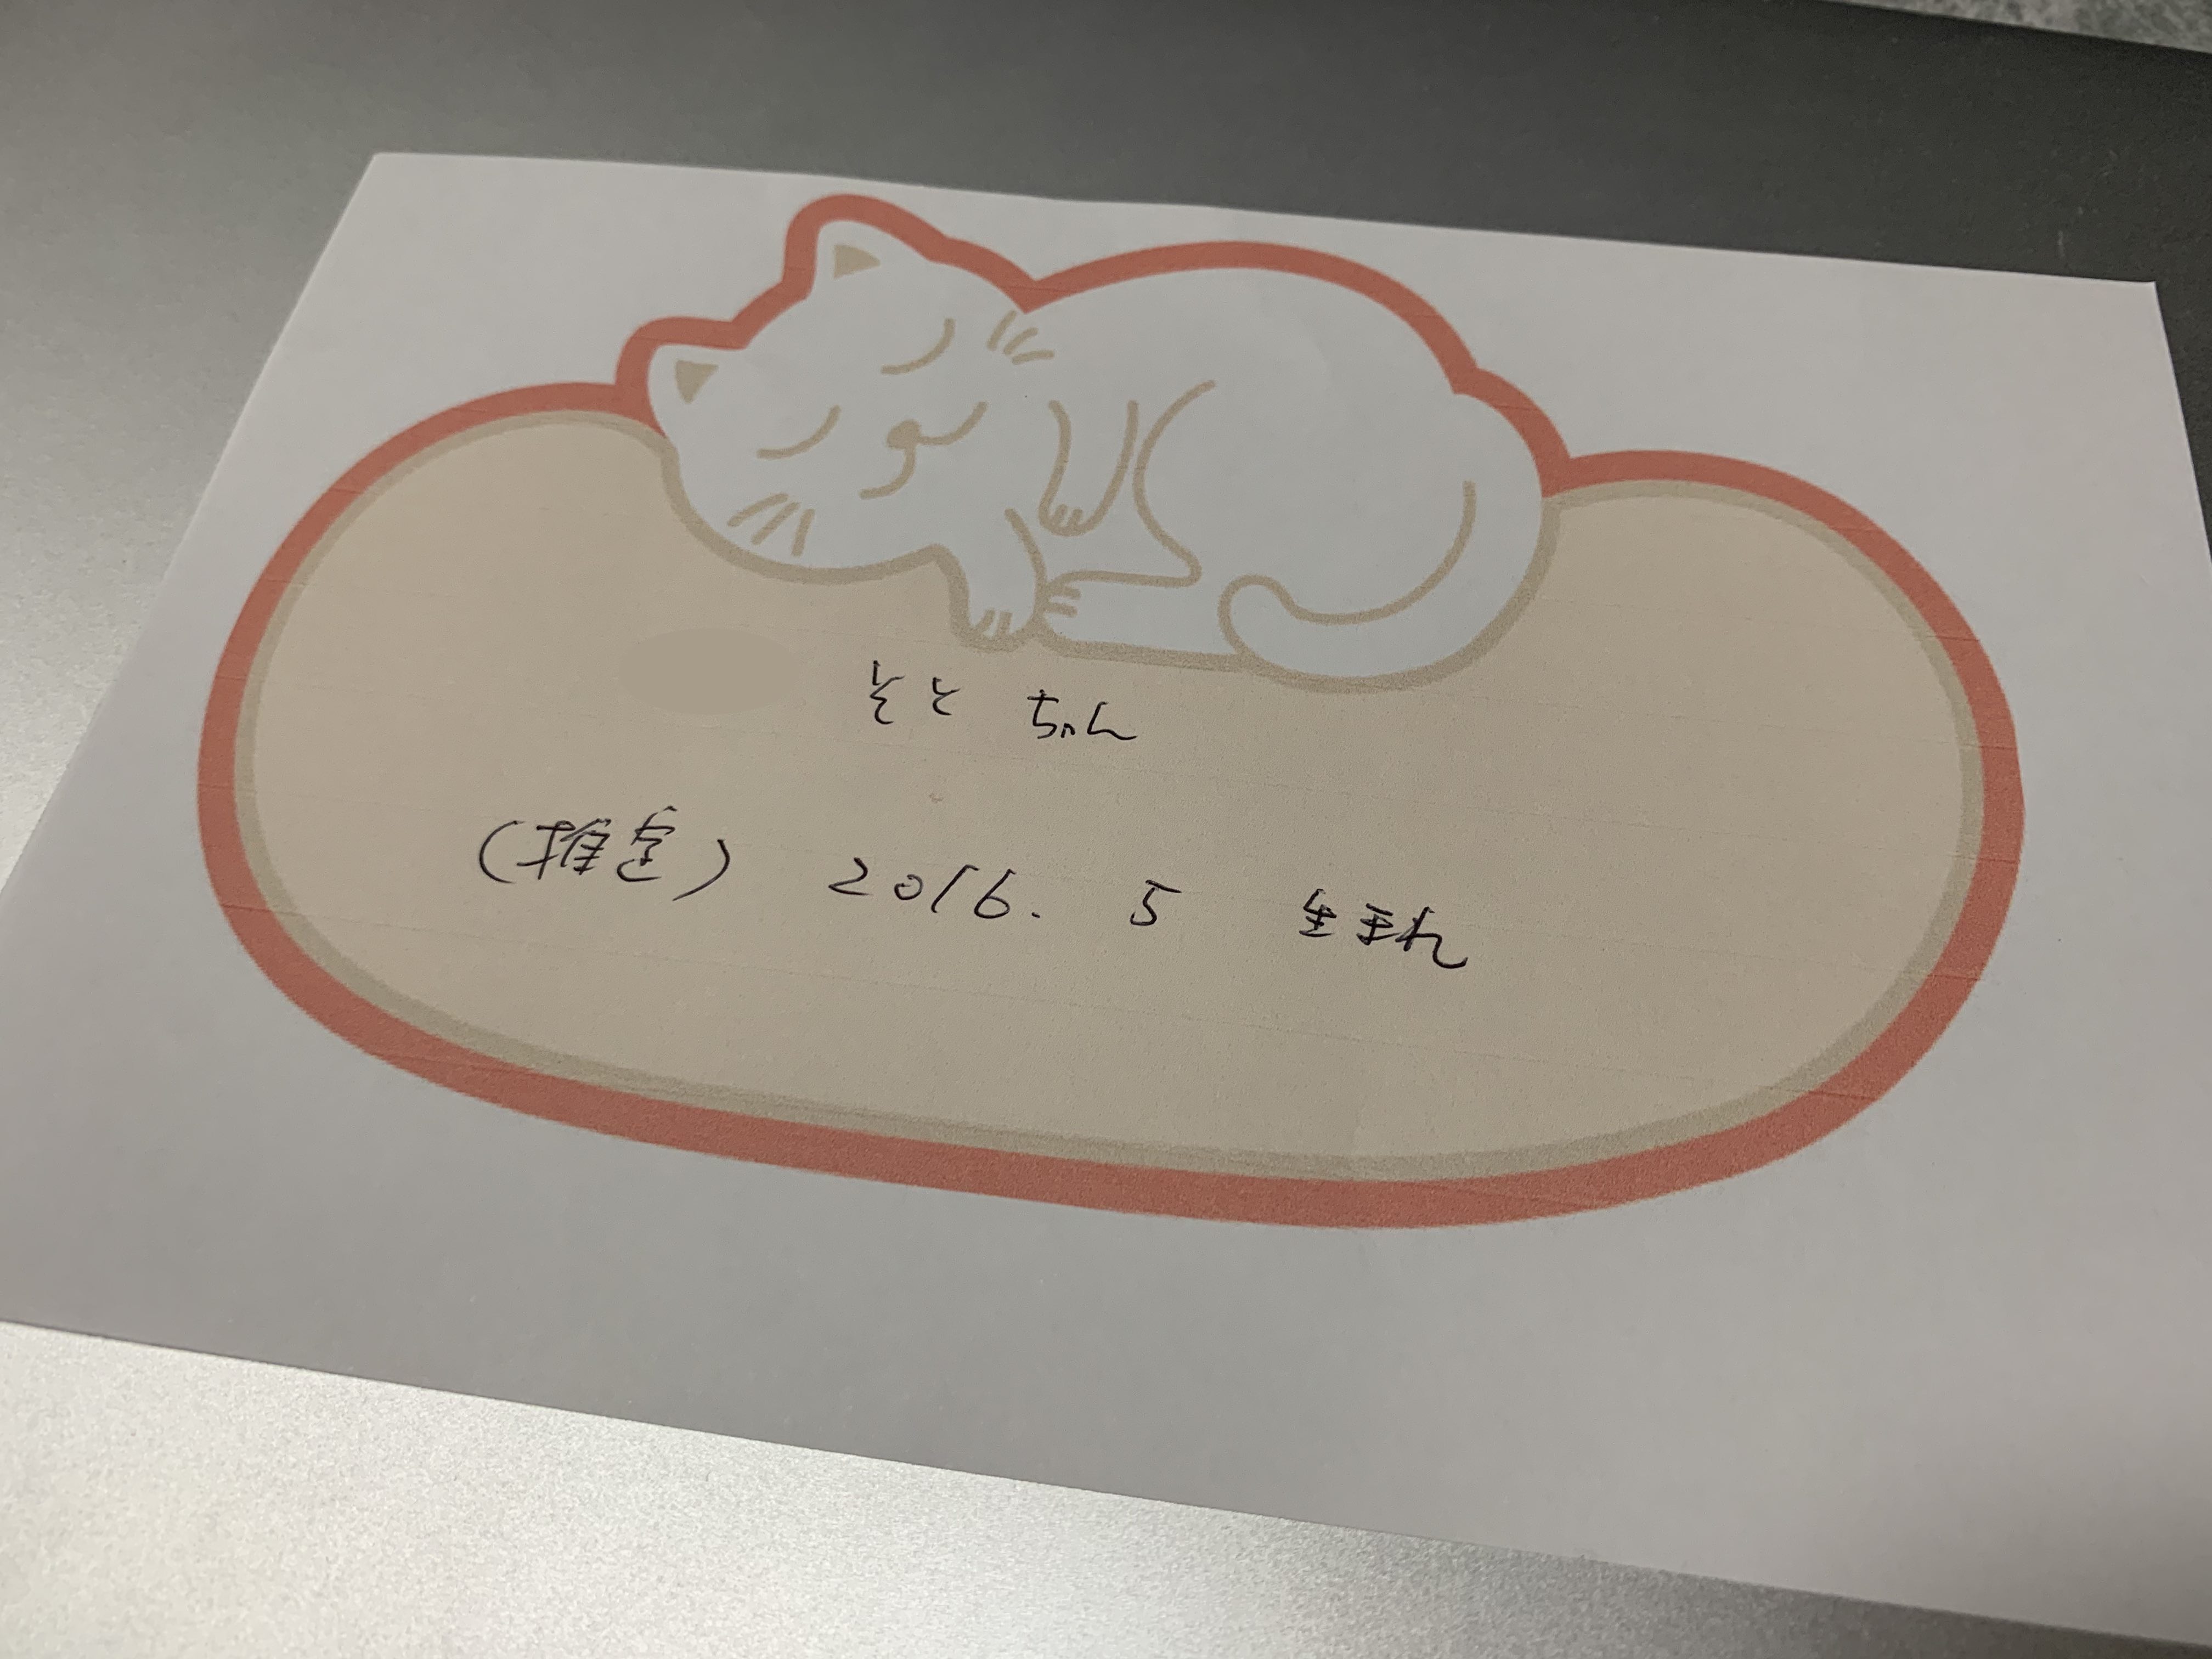 そと ちゃん
(推定) 2016. 5 生まれ